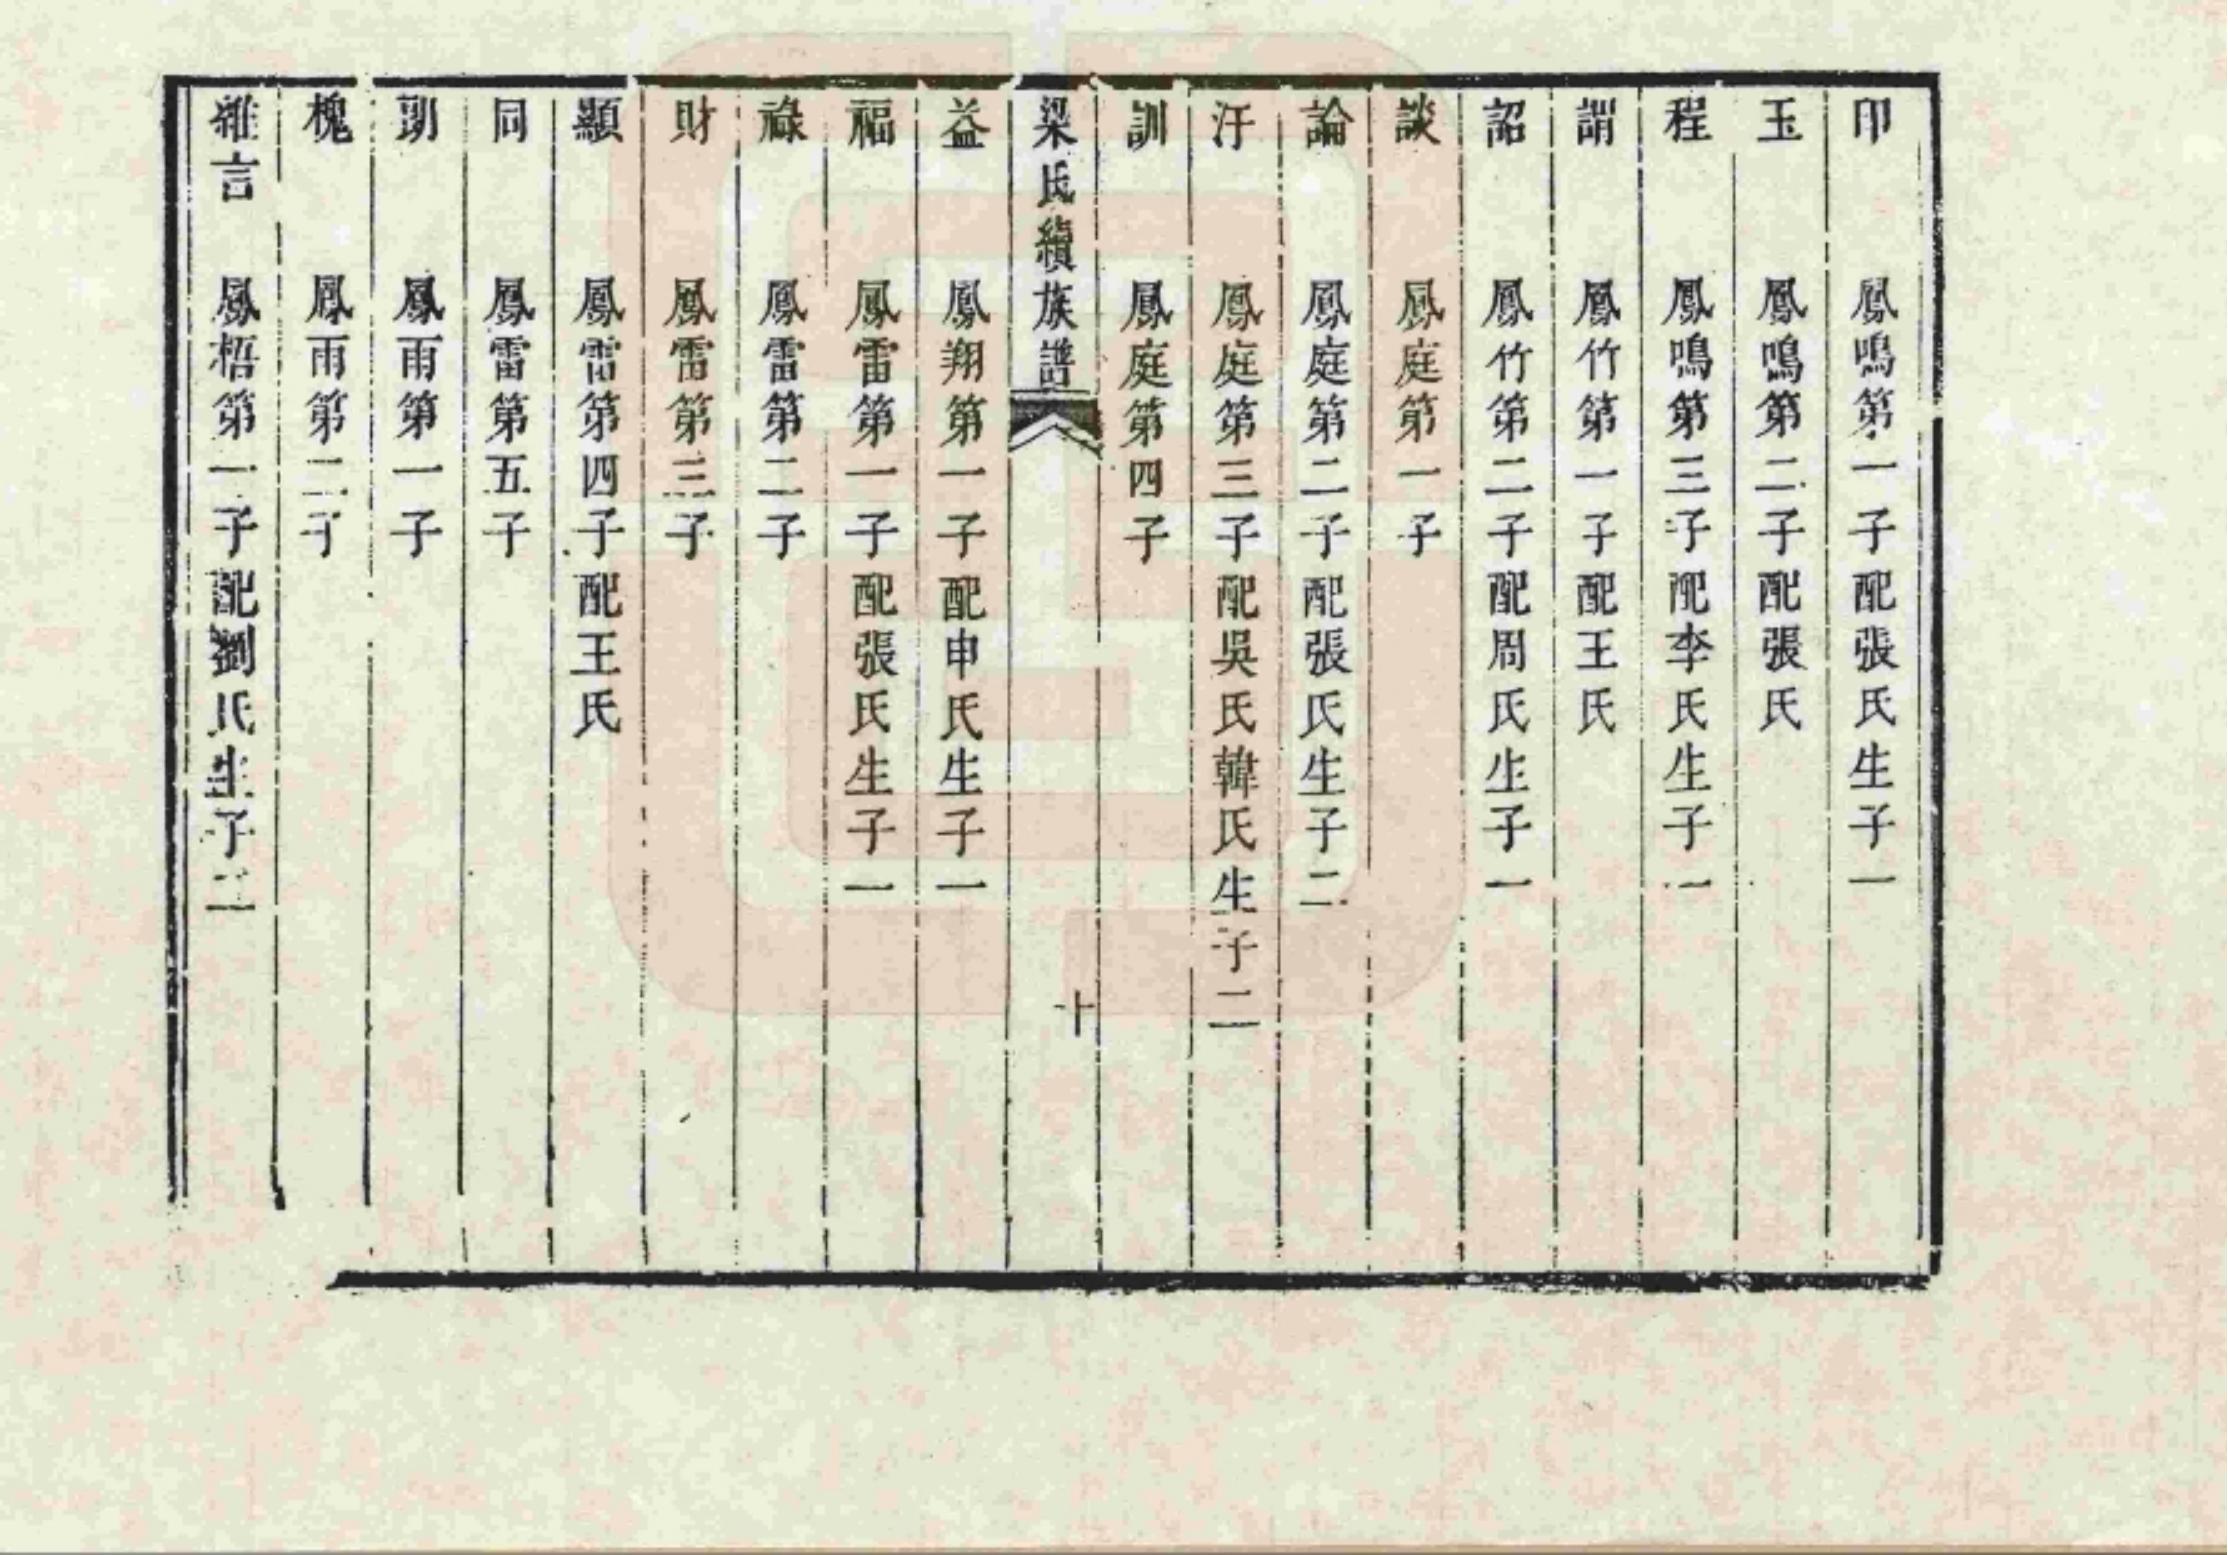 印 鳳鳴第一子配張氏生子一
玉 鳳鳴第二子配張氏
程 鳳鳴第三子配李氏生子一
謂 鳳竹第一子配王氏
詔 鳳竹第二子配周氏生子一
談 鳳庭第一子
論 鳳庭第二子配張氏生子二
汙 鳳庭第三子配吳氏韓氏生子二
訓 鳳庭第四子
梁氏續族譜 十
益 鳳翔第一子配申氏生子一
福 鳳雷第一子配張氏生子一
祿 鳳雷第二子
財 鳳雷第三子
顯 鳳雷第四子配王氏
同 鳳雷第五子
鳳雨第一子
槐 鳳雨第二子
雅言 鳳梧第一子配劉氏生子